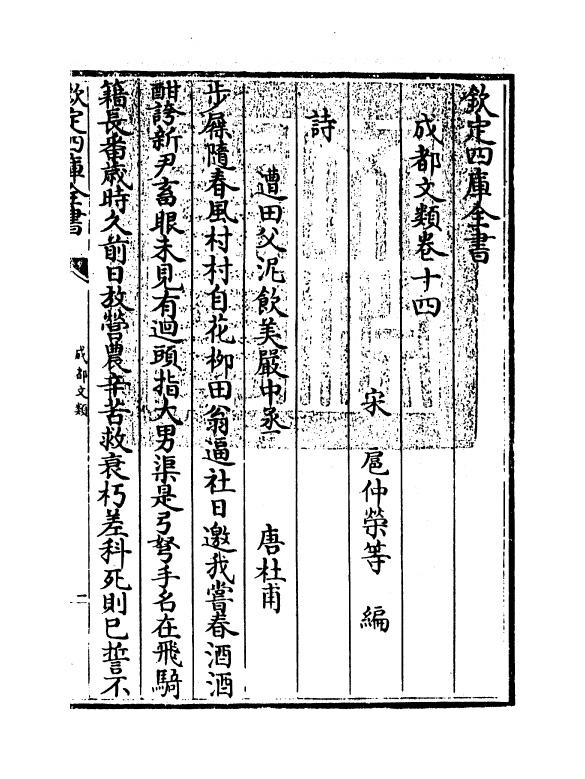 欽定四庫全書
成都文類卷十四
宋 扈仲榮等 編
詩
遭田父泥飲美嚴中丞 唐杜甫
步屧隨春風村村自花柳田翁逼社日邀我嘗春酒酒
酣誇新尹畜眼未見有迴頭指大男渠是弓弩手名在飛騎
籍長番歳時久前日放營農辛苦救衰朽差科死則已誓不
欽定四庫全書
成都文類